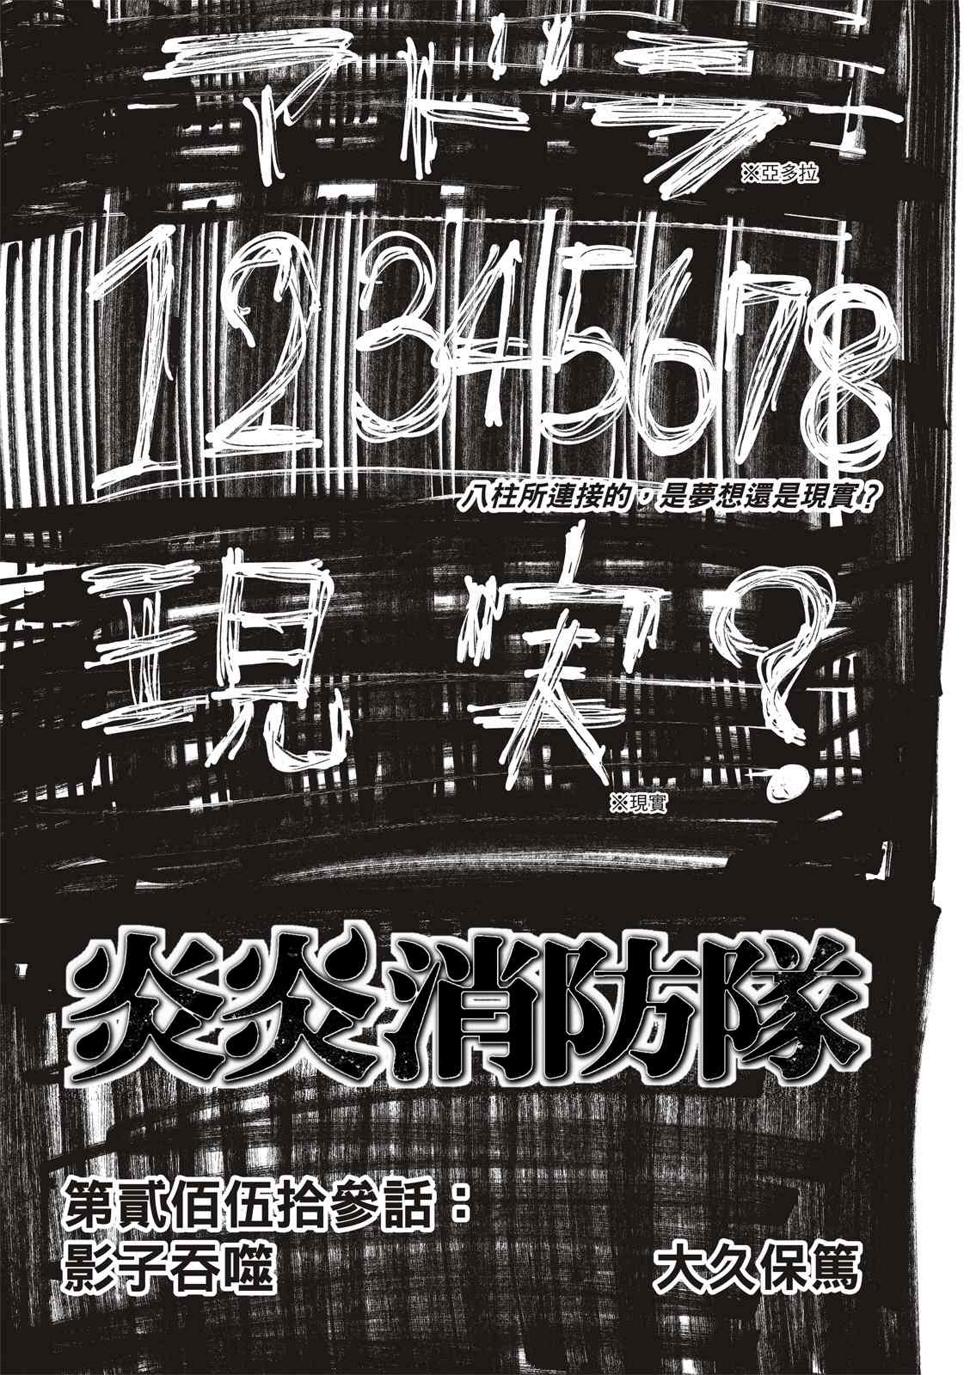 アドラ
※亞多拉
12345678
八柱所連接的，是夢想還是現實？
現実？
※現實
炎炎消防隊
第貳佰伍拾參話：
影子吞噬
大久保篤